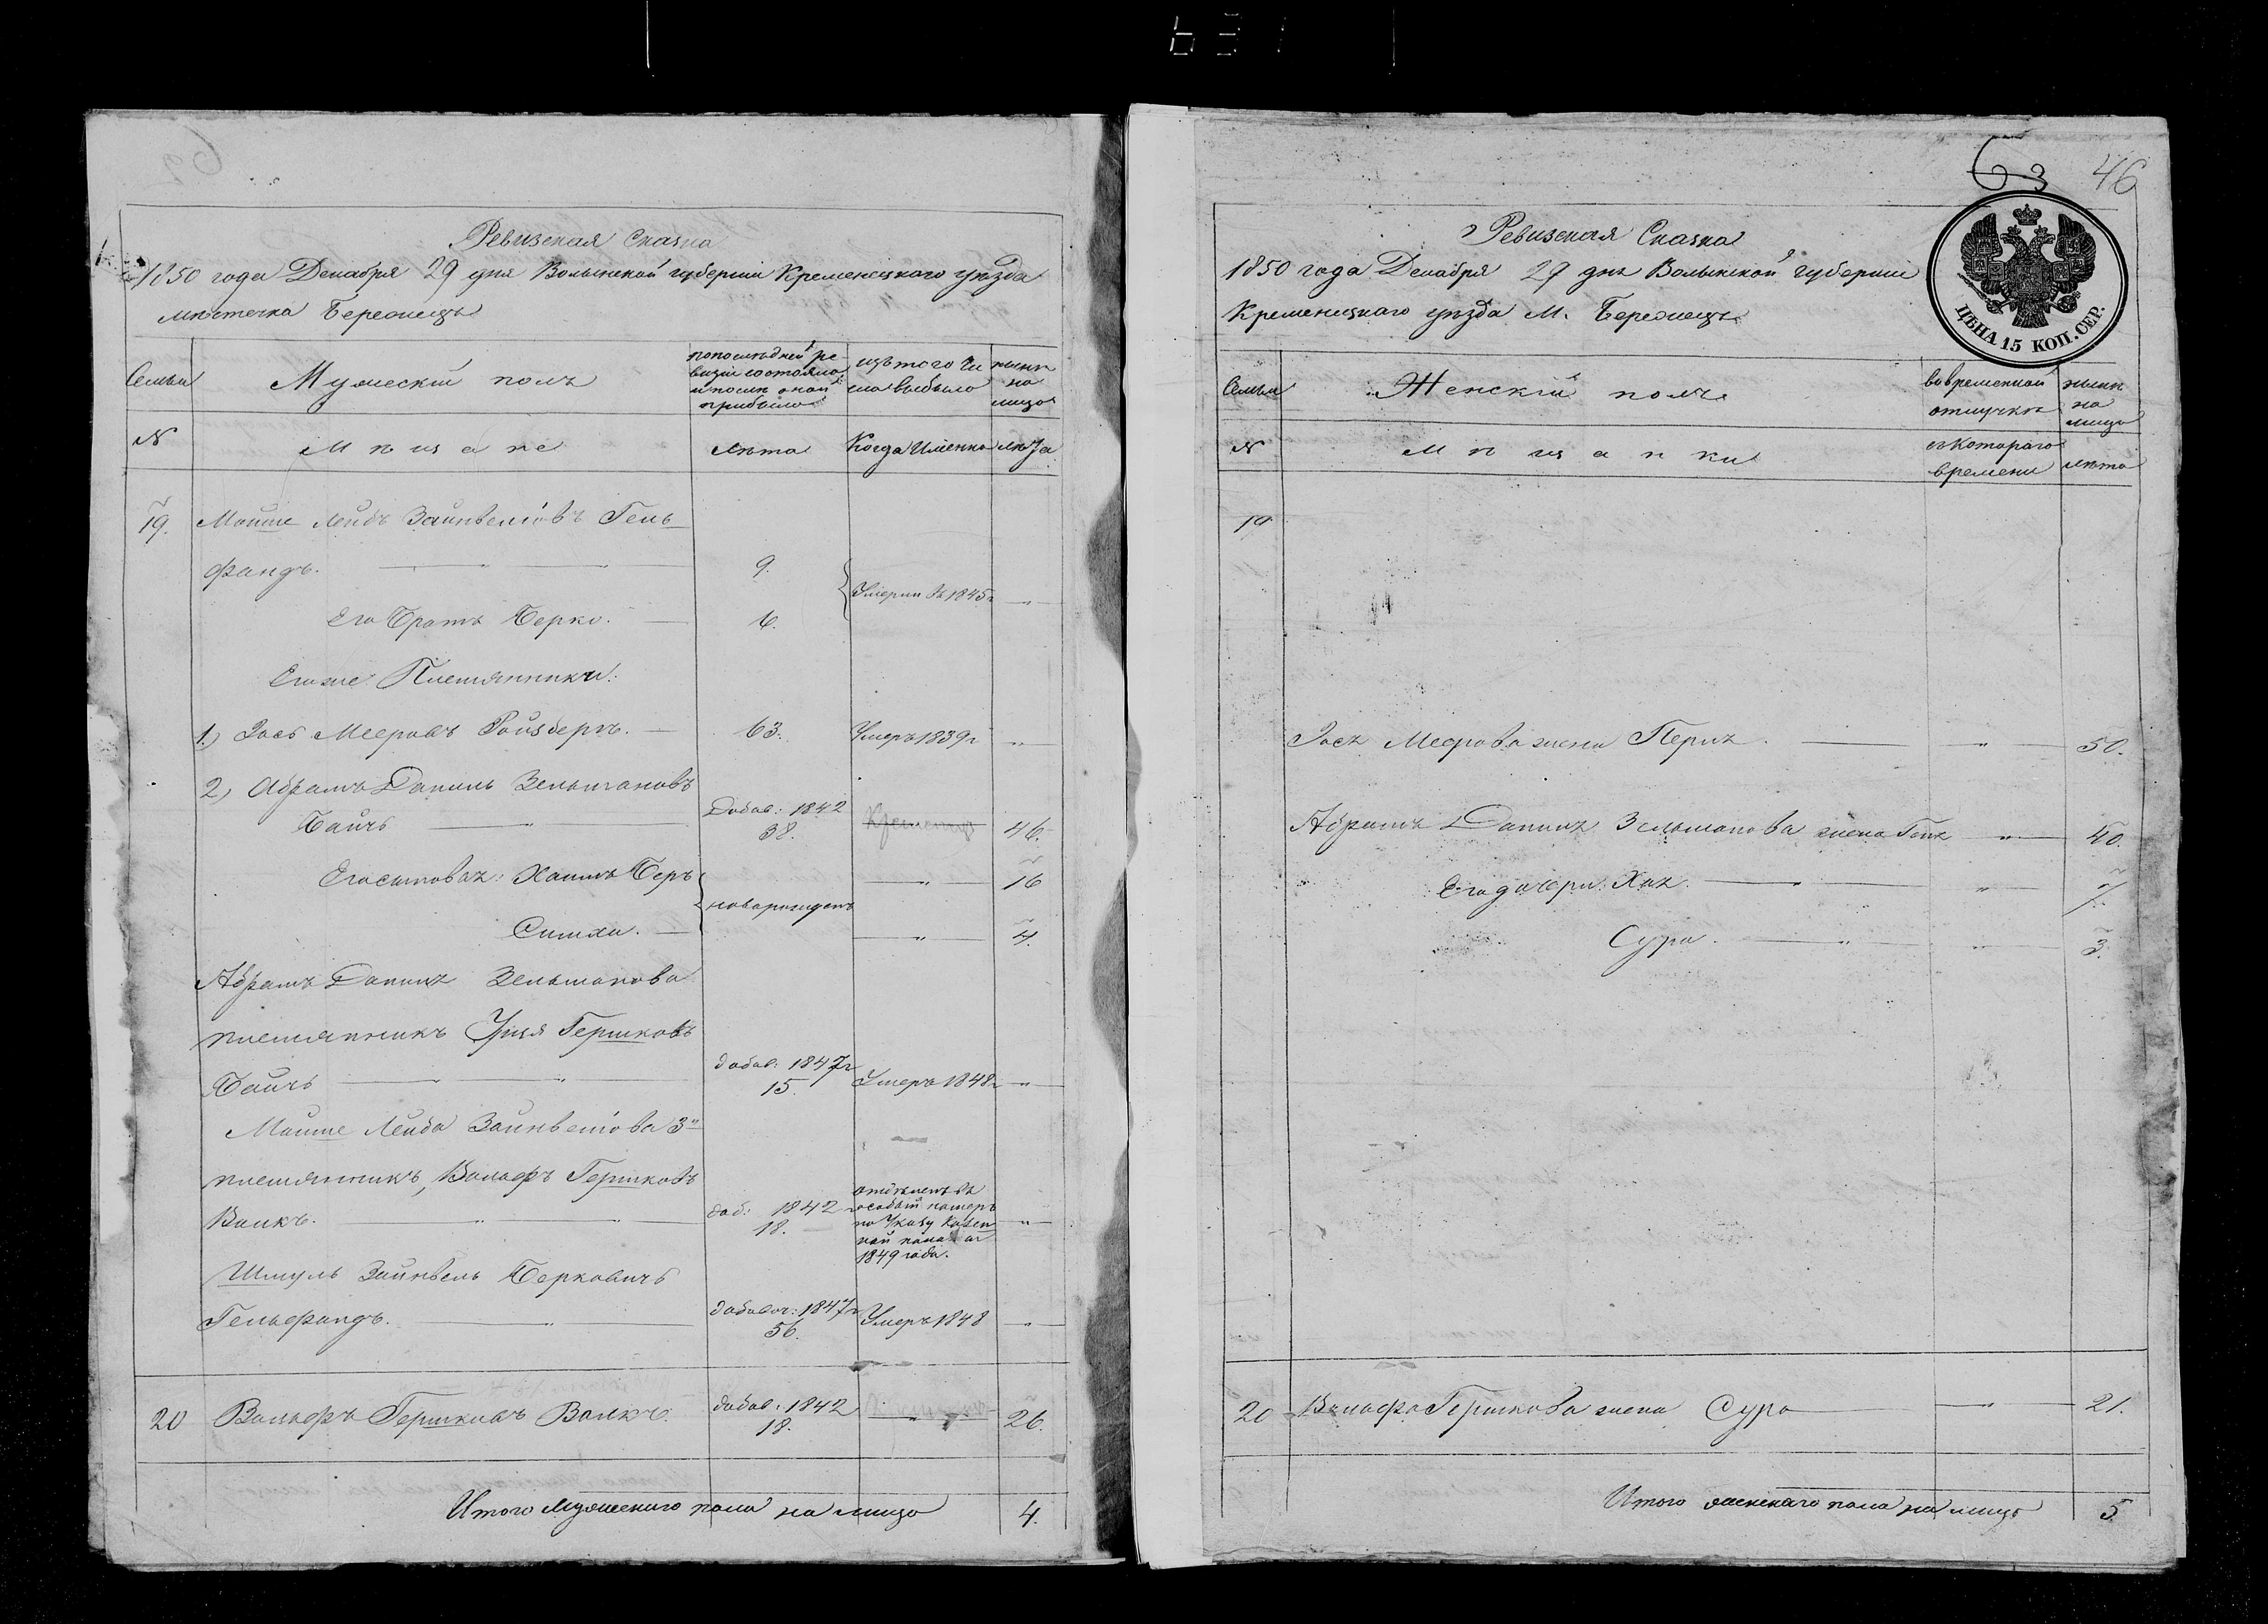 Ревизская Сказка
1850 года Декабря 29 дня Волынской губернии Кременецкаго уѣзда
мѣстечка Бережецъ
Семьи
Мужескій полъ
попослѣдней ре-
визіи состояло
и послѣ оной
прибыло
изъ того чи
сла выбыло
нынѣ
на
лицо
№
Мѣщане
лѣта
Когда Именно
лѣта
19.
Мошше Лейбъ Зайнвеліовъ Гель
фандъ.
9.
Умерли въ 1845г
Его Братъ Берко.
6.
Егоже Племянники:
1.) Іось Мееровъ Ройзберъ.
63.
Умеръ 1839г
2, Абрамъ Даниль Зельмановъ
Байчъ
Добав: 1842
38.
46.
Его сыновья: Хаимъ Беръ
новорожден
16
Симха.
4.
Абрамъ Данила Зельманова
племянникъ Гершковъ
Байчъ
добав: 1847г
15.
Умеръ 1848г
Мошше Лейба Зайнвеліова 3й
племянникъ, Вольфъ Гершковъ
Волкъ.
доб: 1842
18.
отдѣленъ въ
особый номеръ
по Указу Казен
ной
1849 года.
Шмуль Зайнвель Берковичъ
Гельфандъ.
добавоч: 1847г
56.
Умеръ 1848
20
Вольфъ Гершковъ Волкъ.
добав: 1842
18.
26.
Итого мужескаго пола на лицо
4.
63
46
Ревизская Сказка
1850 года Декабря 29 дня Волынской губерніи
Кременецкаго уѣзда М. Бережецъ
ЦѢНА 15 КОП. СЕР.
Семьи
Женскій полъ
во временной
отлучкѣ
нынѣ
на
лицо
№
Мѣщанки
съ Котораго
времени
лѣта
19
Іося Меерова жена Перля
50.
Абрамъ Данила Зельманова жена
40.
Его дочери: Хая.
7.
Сура.
3.
20
Вольфа Гершкова жена Сура
21.
Итого женскаго пола на лицо
5